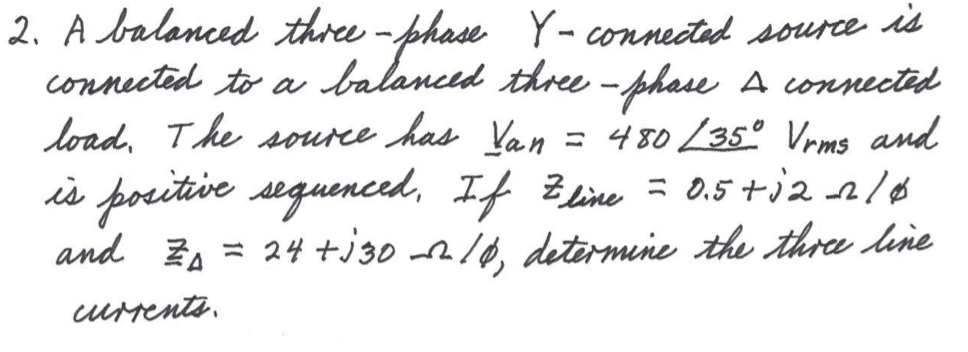 2. A balanced three-phase Y-connected source is
connected to a balanced three-phase Δ connected
load. The source has V̲an = 480 ∠35° Vrms and
is positive sequenced. If Zline = 0.5 + j2 Ω/ϕ
and ZΔ = 24 + j30 Ω/ϕ, determine the three line
currents.